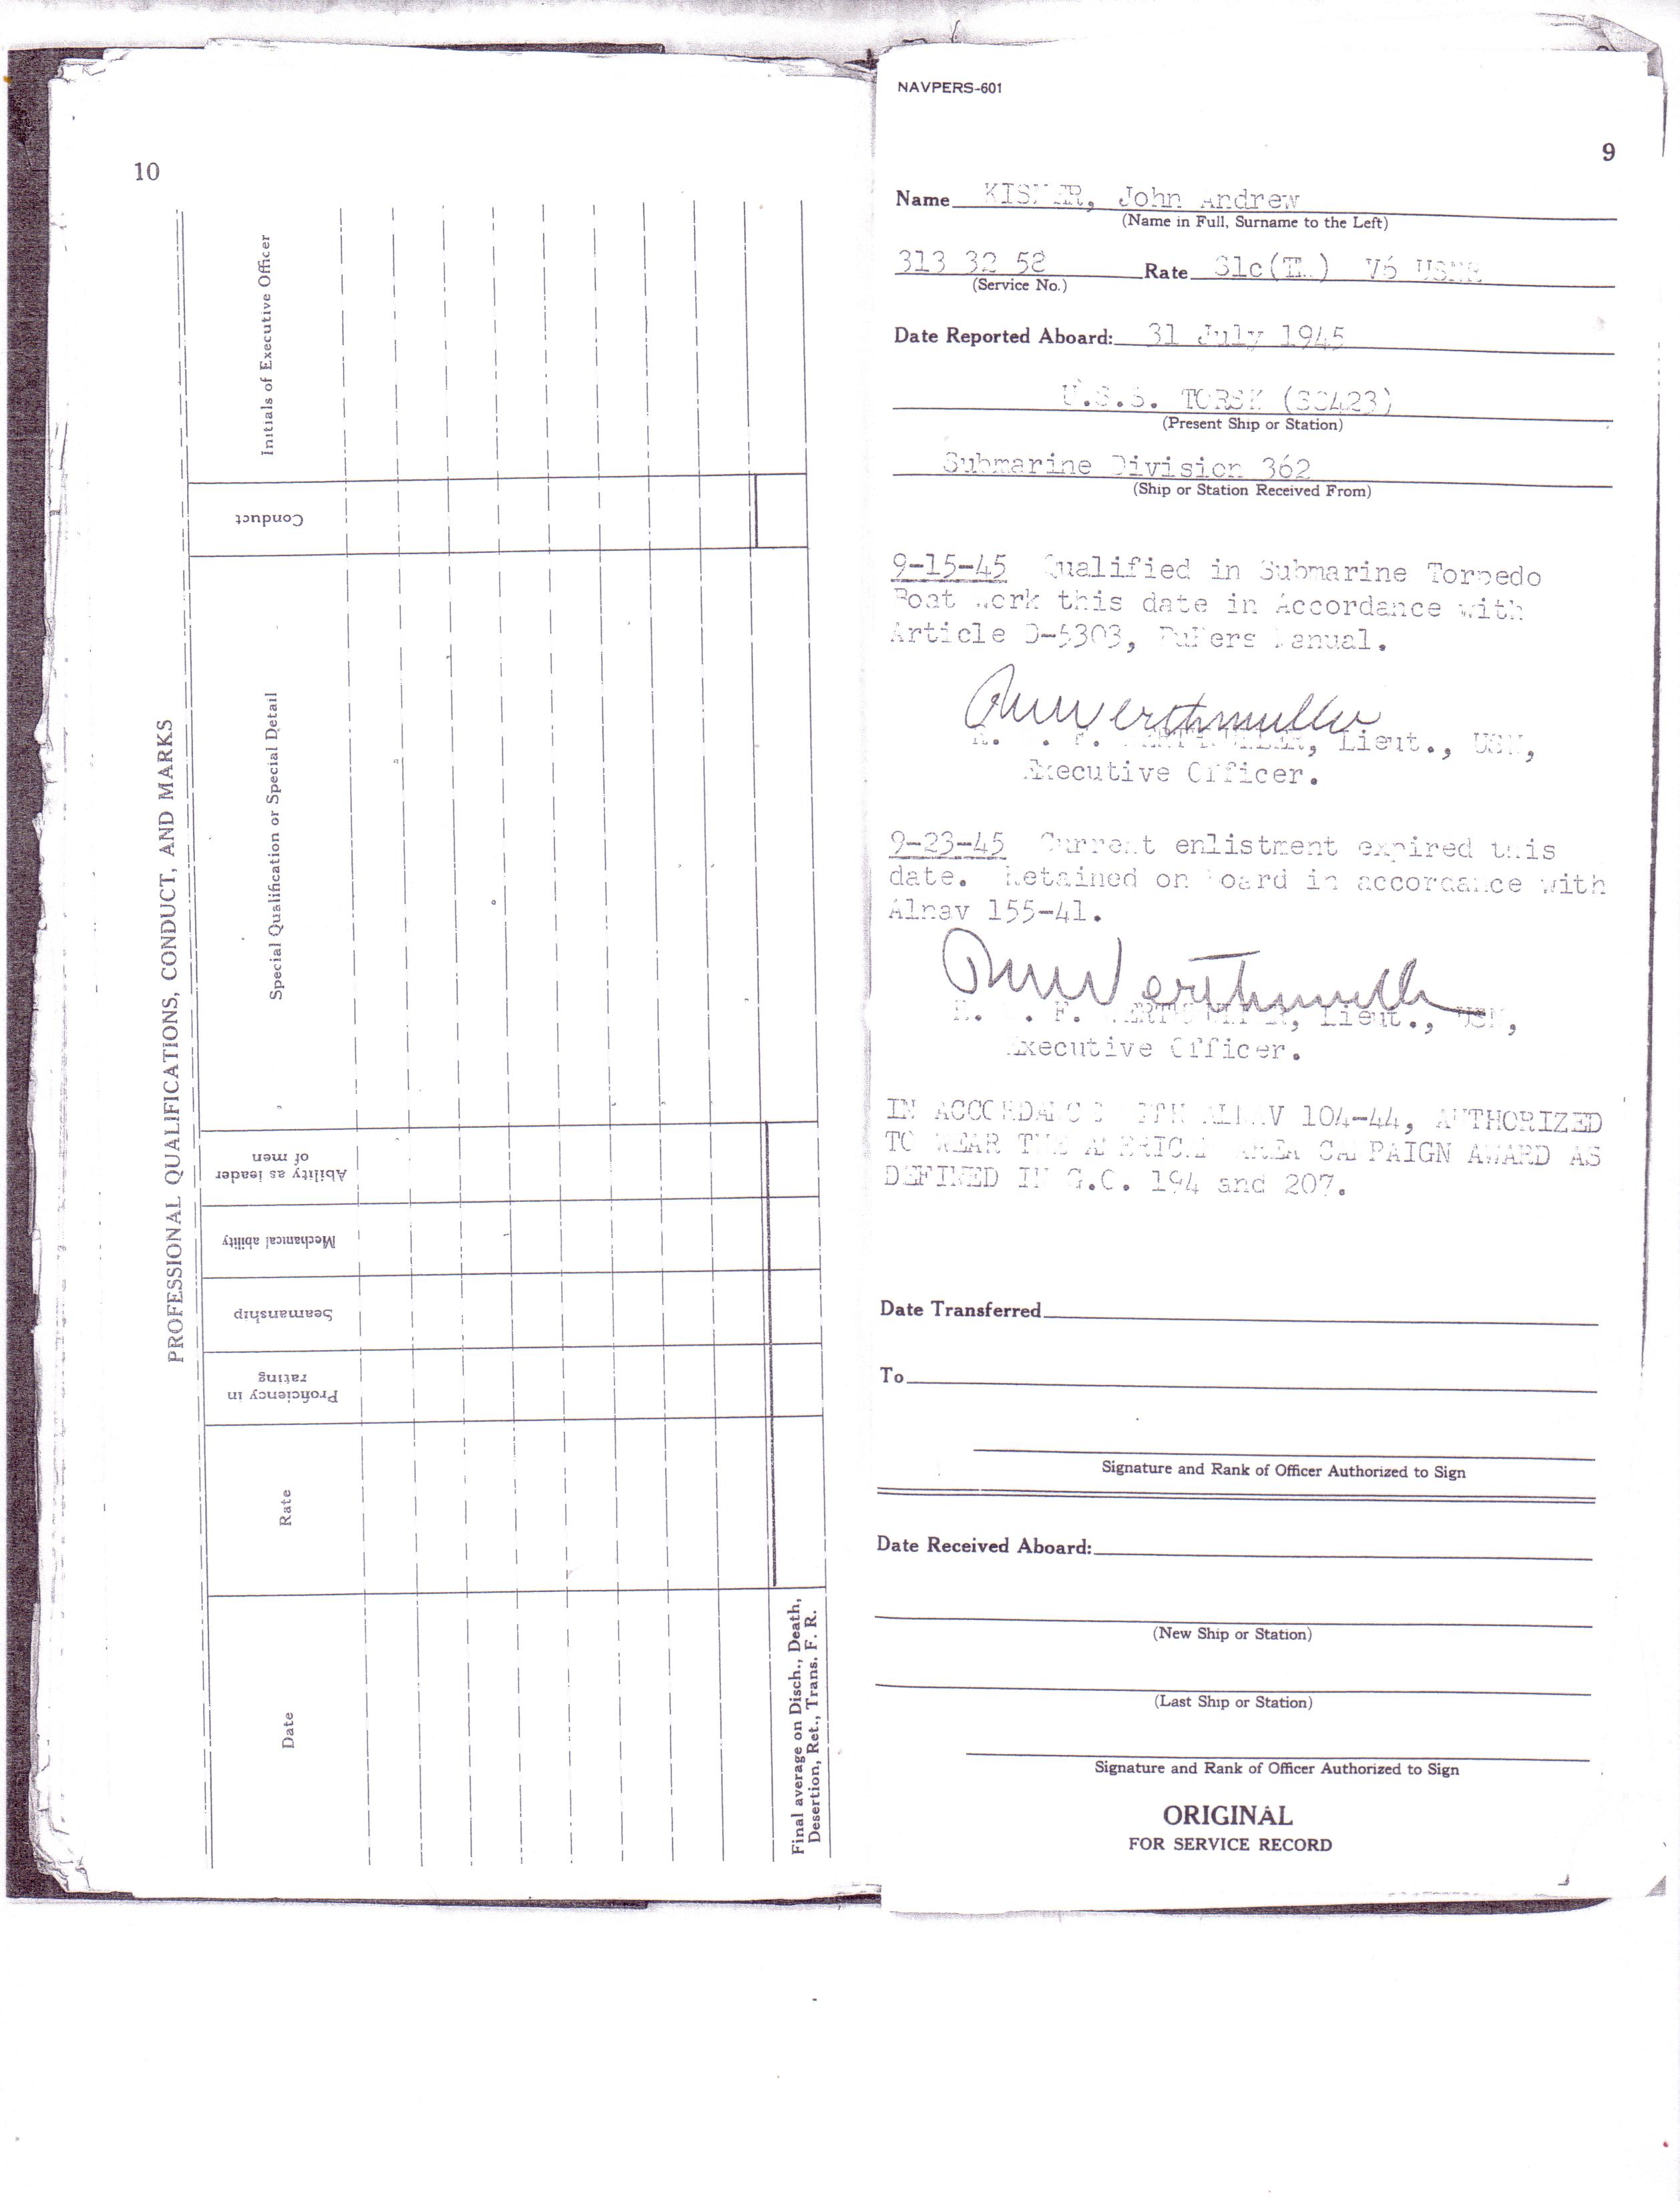 10
PROFESSIONAL QUALIFICATIONS, CONDUCT, AND MARKS
Date
Rate
Proficiency in
rating
Seamanship
Mechanical ability
Ability as leader
of men
Special Qualification or Special Detail
Conduct
Initials of Executive Officer
Final average on Disch., Death,
Desertion, Ret., Trans. F. R.
NAVPERS-601
9
Name John Andrew
(Name in Full, Surname to the Left)
313 32 58 Rate S1c V6 USNR
(Service No.)
Date Reported Aboard: 31 July 1945
U.S.S. TORSK (SS423)
(Present Ship or Station)
Submarine Division 362
(Ship or Station Received From)
9-15-45 Qualified in Submarine Torpedo
Boat work this date in Accordance with
Article D-5303, BuPers Manual.
RMWerthmuller
Lieut., USN,
Executive Officer.
9-23-45 Current enlistment expired this
date. Retained on board in accordance with
Alnav 155-41.
RMWerthmuller
Lieut., USN,
Executive Officer.
IN ACCORDANCE WITH ALNAV 104-44, AUTHORIZED
TO WEAR THE AMERICAN AREA CAMPAIGN AWARD AS
DEFINED IN G.O. 194 and 207.
Date Transferred
To
Signature and Rank of Officer Authorized to Sign
Date Received Aboard:
(New Ship or Station)
(Last Ship or Station)
Signature and Rank of Officer Authorized to Sign
ORIGINAL
FOR SERVICE RECORD